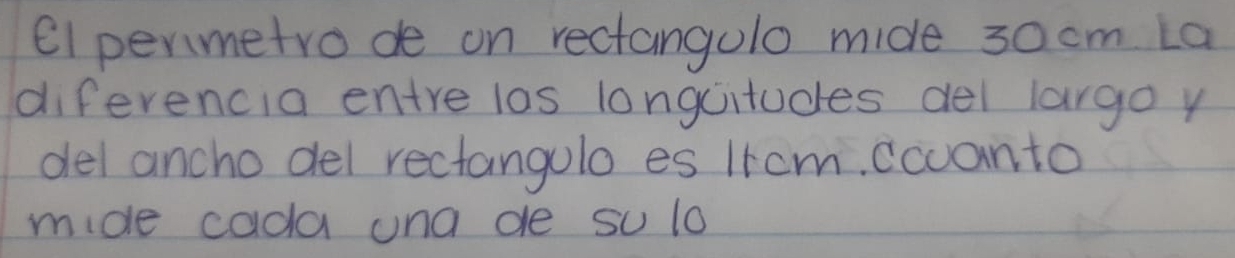 El perimetro de un rectangulo mide 30cm. La
diferencia entre las longuitudes del largo y
del ancho del rectangulo es cm. ccuanto
mide cada una de su lo